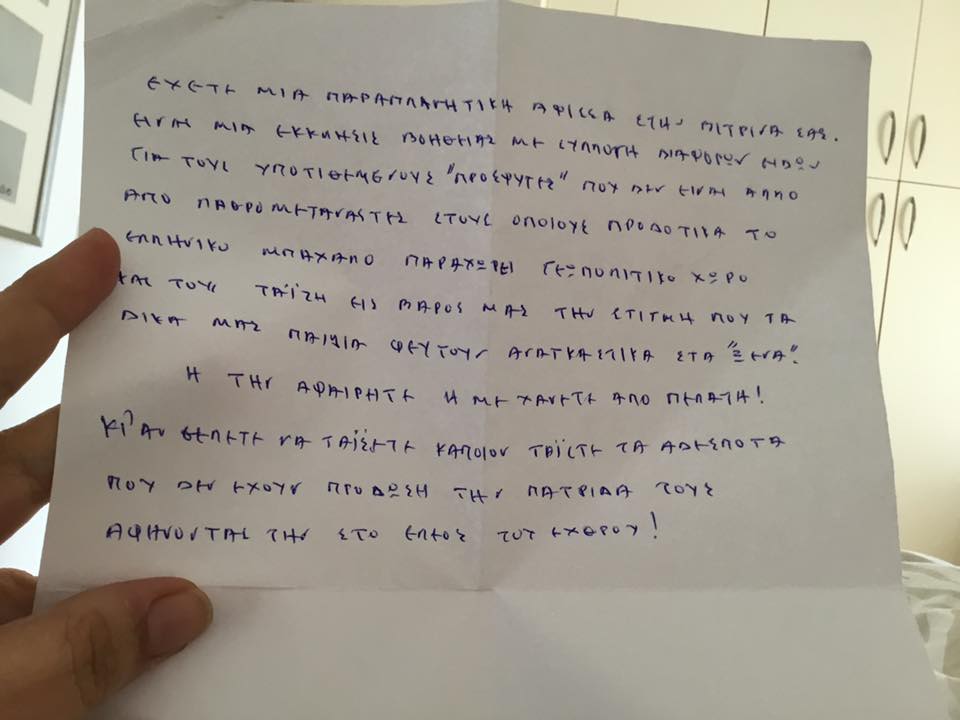 ΕΧΕΤΕ ΜΙΑ ΠΑΡΑΠΛΑΝΗΤΙΚΗ ΑΦΙΣΣΑ ΣΤΗΝ ΒΙΤΡΙΝΑ ΣΑΣ.
ΕΙΝΑΙ ΜΙΑ ΕΚΚΛΗΣΙΣ ΒΟΗΘΕΙΑΣ ΜΕ ΣΥΛΛΟΓΗ ΔΙΑΦΟΡΩΝ ΗΔΩΝ
ΓΙΑ ΤΟΥΣ ΥΠΟΤΙΘΕΜΕΝΟΥΣ "ΠΡΟΣΦΥΓΕΣ" ΠΟΥ ΔΕΝ ΕΙΝΑΙ ΑΛΛΟ
ΑΠΟ ΛΑΘΡΟΜΕΤΑΝΑΣΤΕΣ ΣΤΟΥΣ ΟΠΟΙΟΥΣ ΠΡΟΔΟΤΙΚΑ ΤΟ
ΕΛΛΗΝΙΚΟ ΜΠΑΧΑΛΟ ΠΑΡΑΧΩΡΕΙ ΓΕΩΠΟΛΙΤΙΚΟ ΧΩΡΟ
ΚΑΙ ΤΟΥΣ ΤΑΪΖΗ ΕΙΣ ΒΑΡΟΣ ΜΑΣ ΤΗΝ ΣΤΙΓΜΗ ΠΟΥ ΤΑ
ΔΙΚΑ ΜΑΣ ΠΑΙΔΙΑ ΦΕΥΓΟΥΝ ΑΝΑΓΚΑΣΤΙΚΑ ΣΤΑ "ΞΕΝΑ".
Η ΤΗΝ ΑΦΑΙΡΗΤΕ Η ΜΕ ΧΑΝΕΤΕ ΑΠΟ ΠΕΛΑΤΗ!
ΚΙ' ΑΝ ΘΕΛΕΤΕ ΝΑ ΤΑΪΣΕΤΕ ΚΑΠΟΙΟΝ ΤΑΪΣΤΕ ΤΑ ΑΔΕΣΠΟΤΑ
ΠΟΥ ΔΕΝ ΕΧΟΥΝ ΠΡΟΔΩΣΗ ΤΗΝ ΠΑΤΡΙΔΑ ΤΟΥΣ
ΑΦΗΝΟΝΤΑΣ ΤΗΝ ΣΤΟ ΕΛΕΟΣ ΤΟΥ ΕΧΘΡΟΥ!